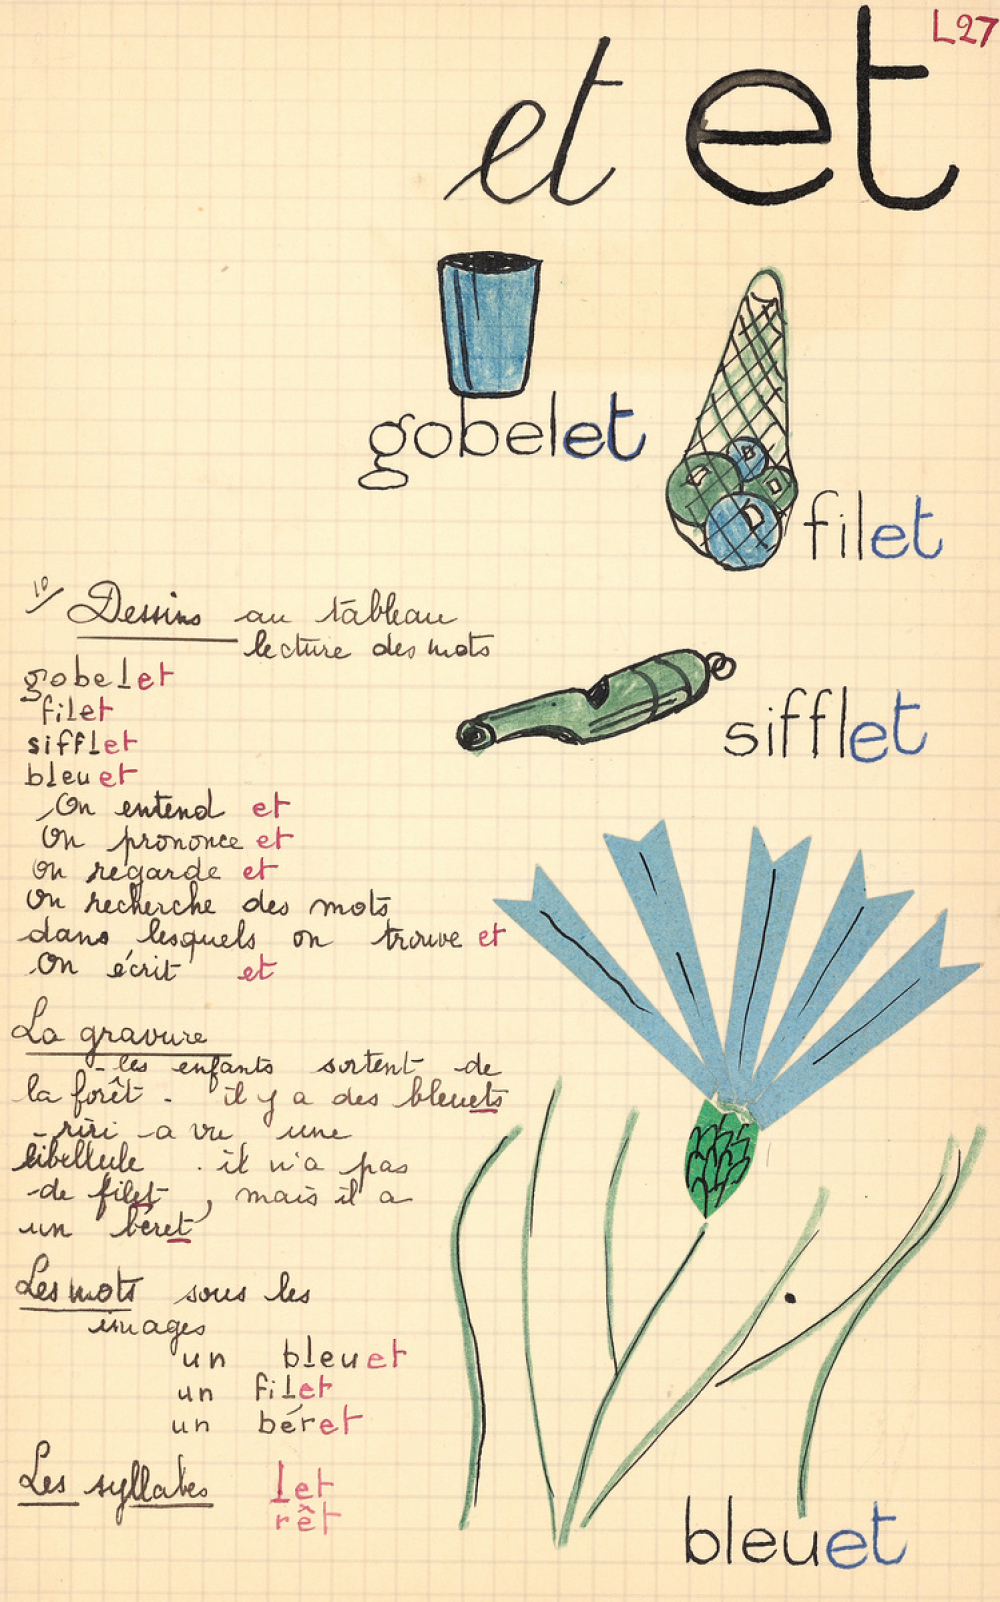 L27
et et
gobelet
filet
1°/ Dessins au tableau
lecture des mots
gobelet
filet
sifflet
bleuet
On entend et
On prononce et
On regarde et
On recherche des mots
dans lesquels on trouve et
On écrit et
sifflet
La gravure
- les enfants sortent de
la forêt - il y a des bleuets
- riri a vu une
libellule . il n'a pas
de filet , mais il a
un béret
Les mots sous les
images
un bleuet
un filet
un béret
Les syllabes let
rêt
bleuet